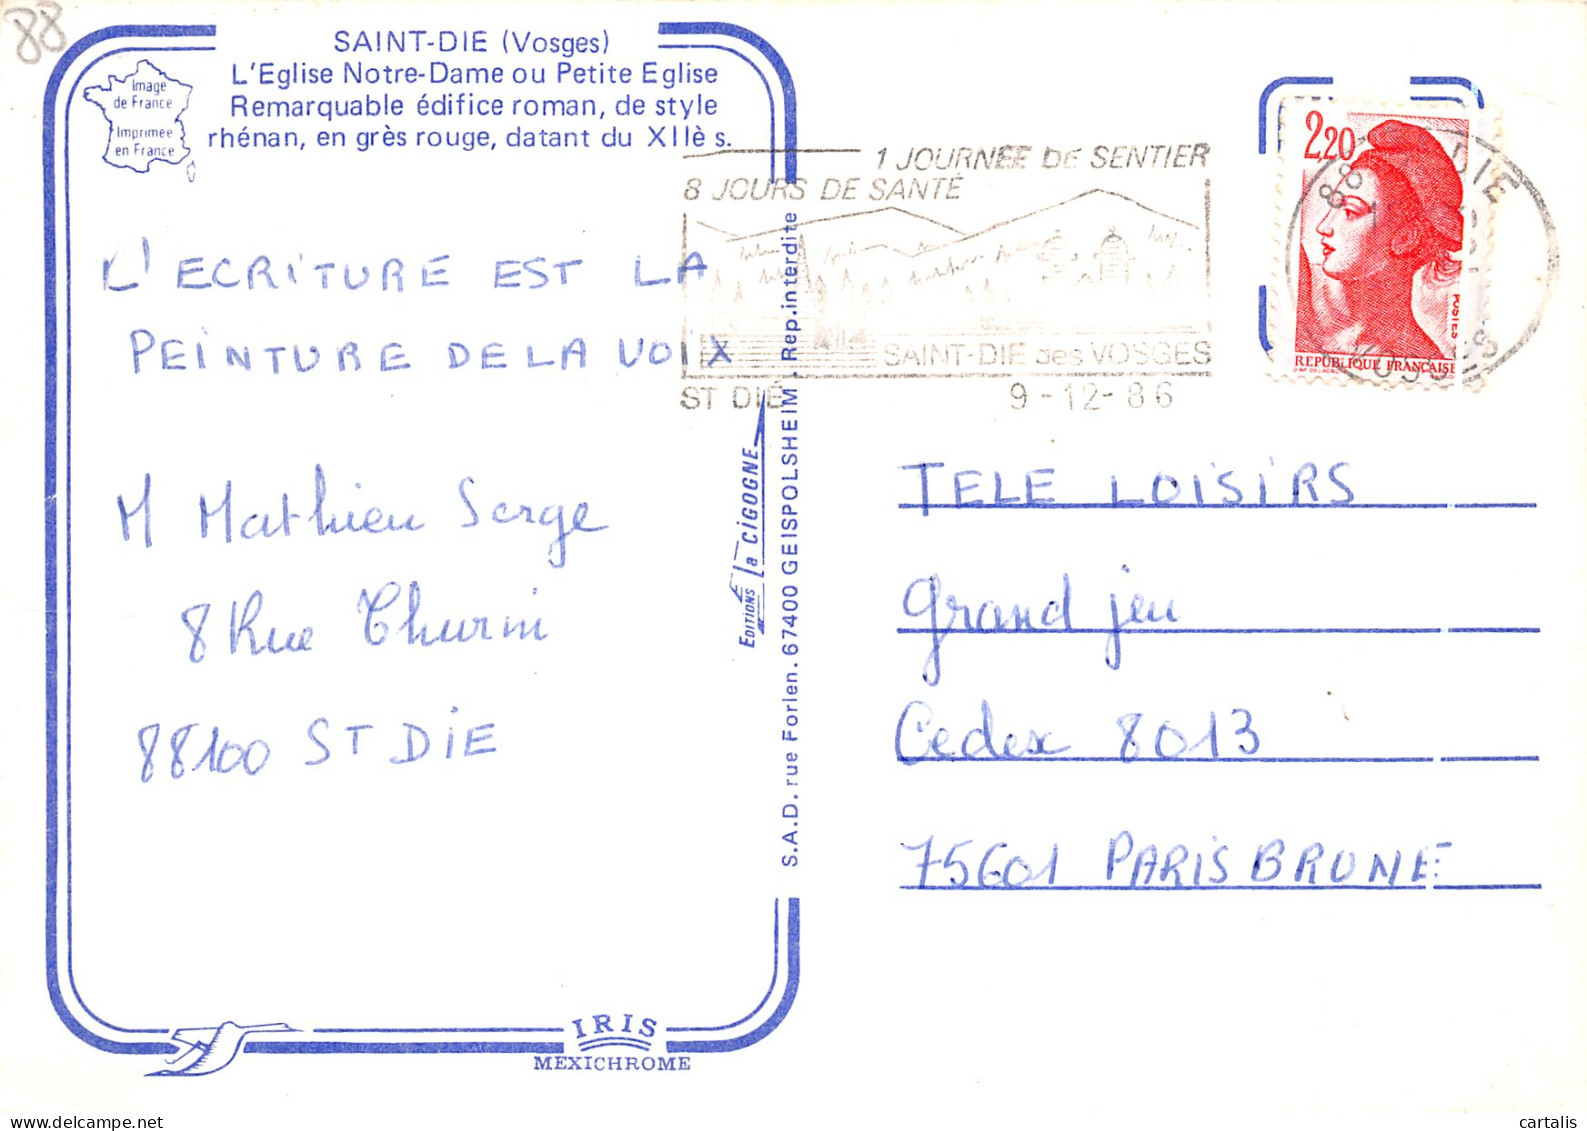 88
SAINT-DIE (Vosges)
L'Eglise Notre-Dame ou Petite Eglise
Remarquable édifice roman, de style
rhénan, en grès rouge, datant du XIIè s.
Image
de France
Imprimée
en France
L'ECRITURE EST LA
PEINTURE DE LA VOIX
M Mathieu Serge
8 Rue Thurin
88100 ST DIE
1 JOURNÉE DE SENTIER
8 JOURS DE SANTÉ
SAINT-DIE des VOSGES
ST DIÉ
9-12-86
2,20
POSTES
REPUBLIQUE FRANÇAISE
88 DIE
VOSGES
EDITIONS la CIGOGNE
S.A.D. rue Forlen. 67400 GEISPOLSHEIM - Rep.interdite
TELE LOISIRS
Grand jeu
Cedex 8013
75601 PARIS BRUNE
IRIS
MEXICHROME
cartalis